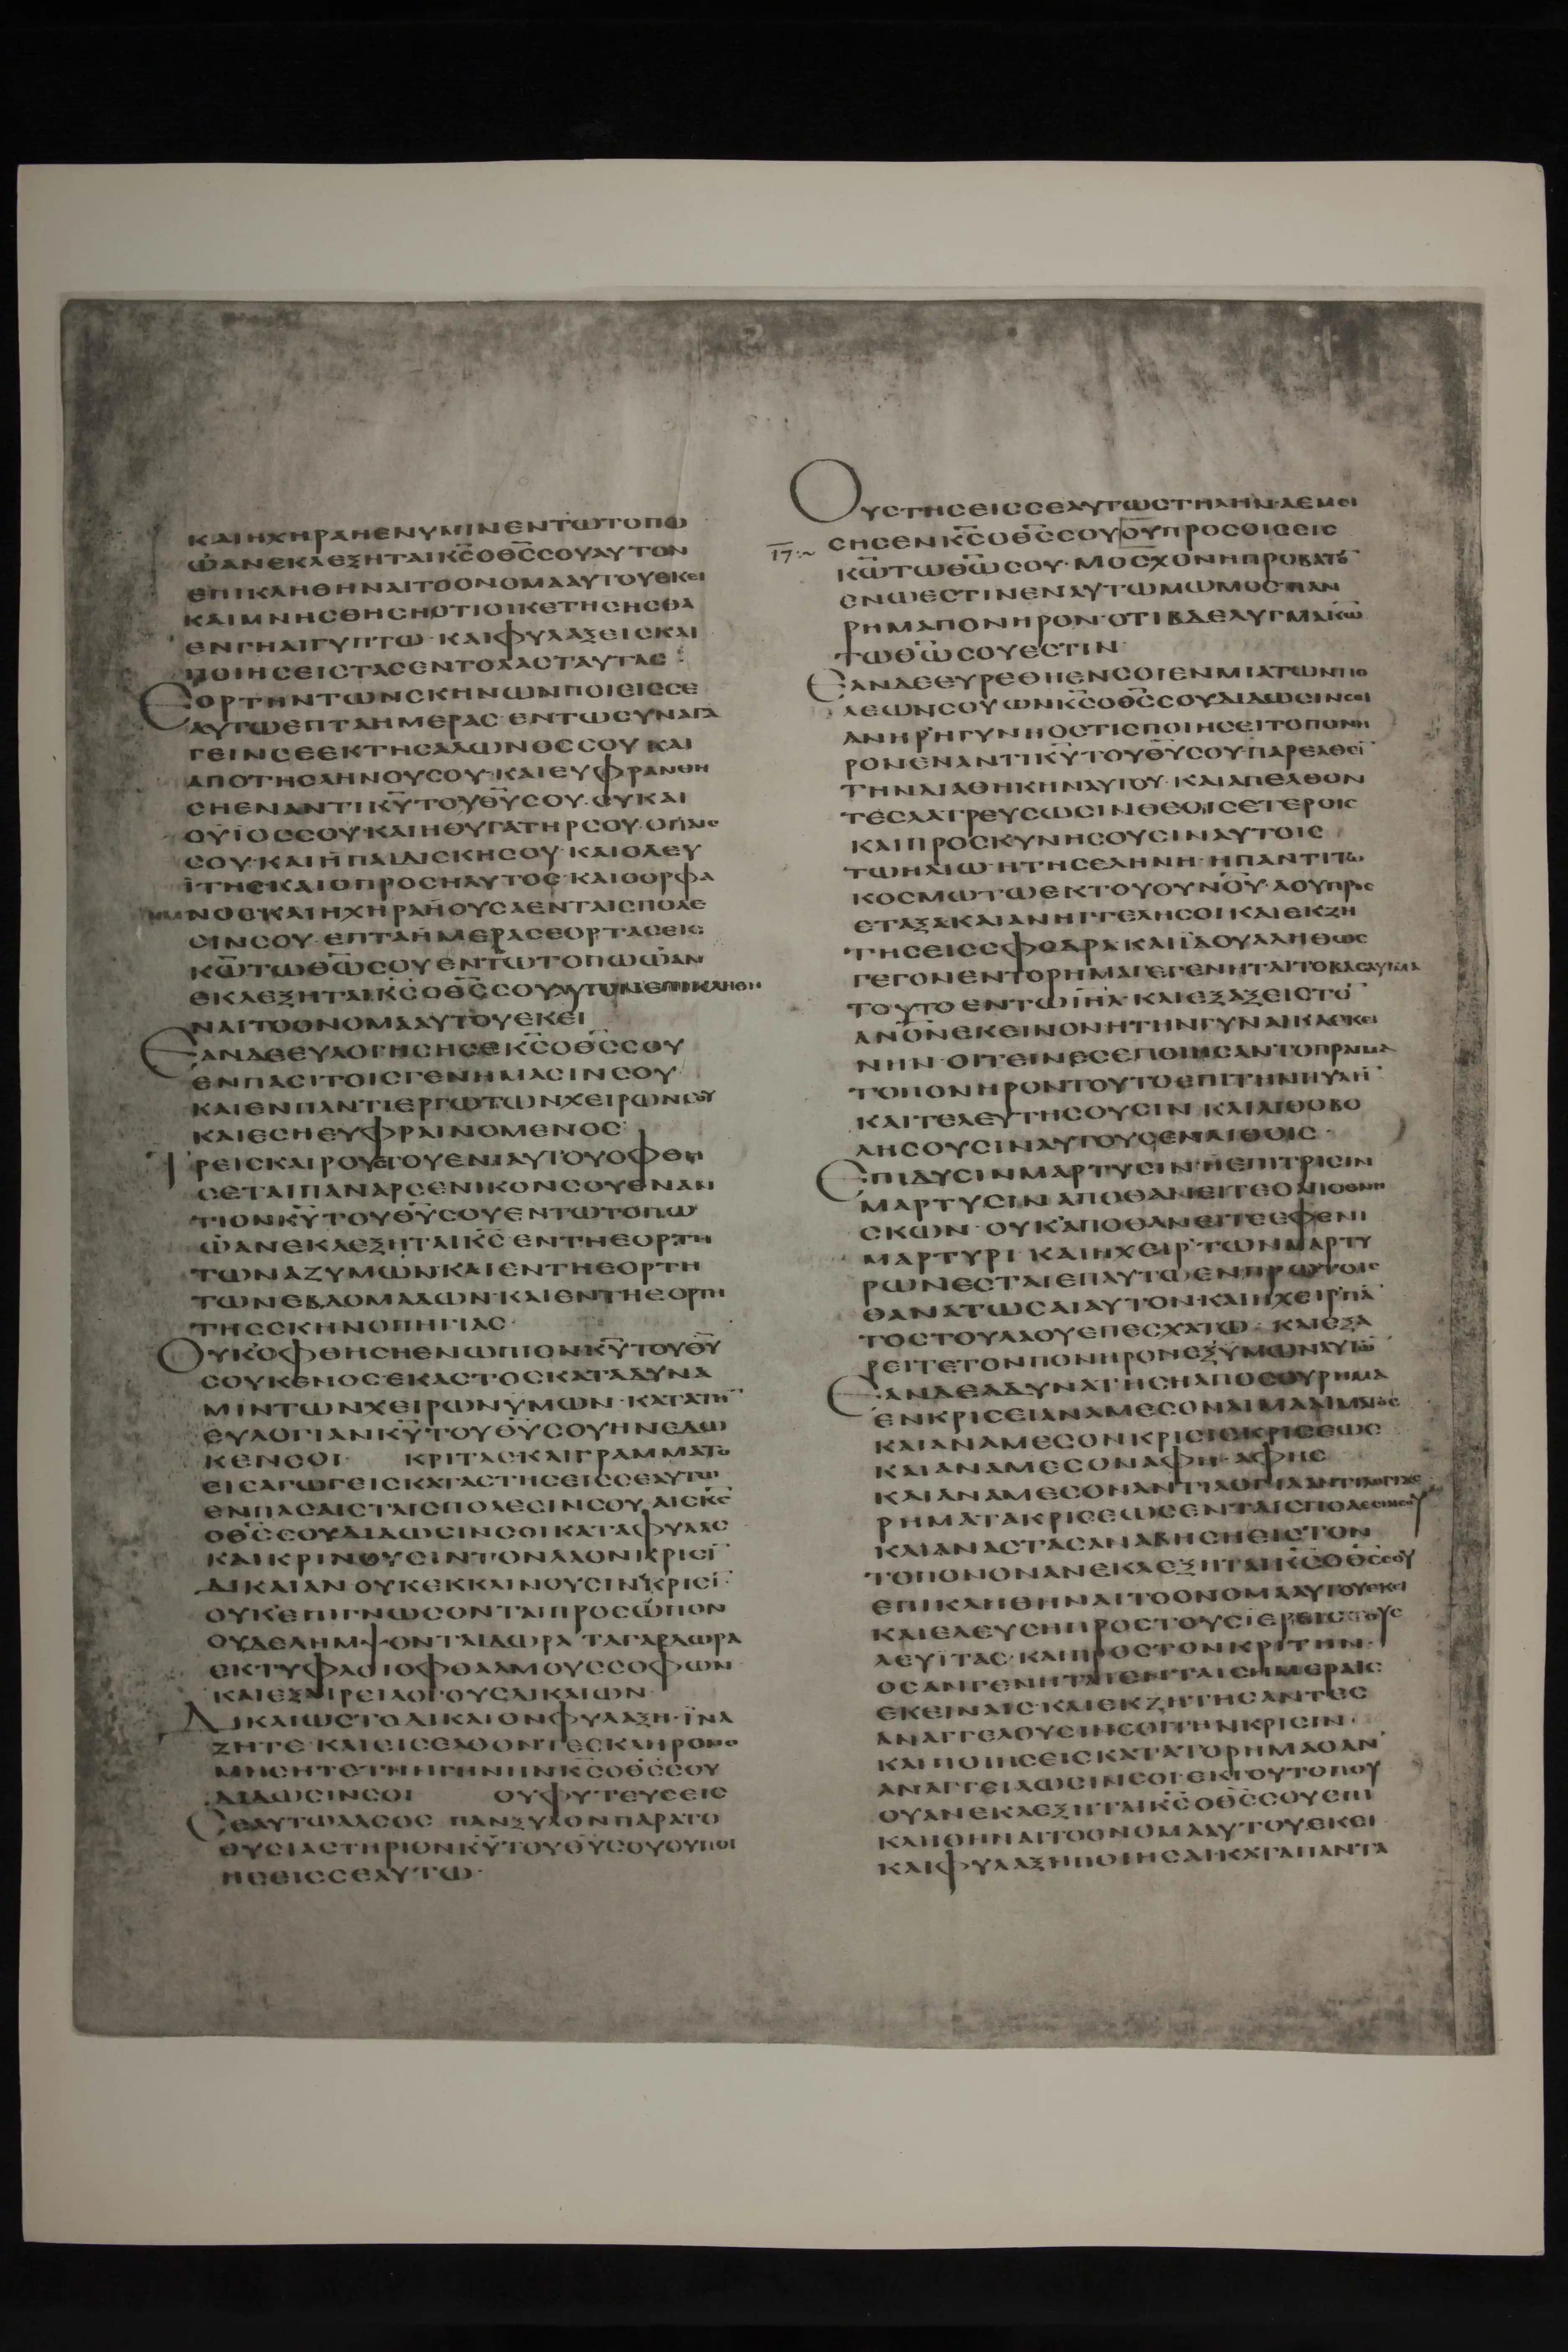 ΚΑΙΗΧΗΡΑΗΕΝΥΜΙΝΕΝΤΩΤΟΠΩ
ΩΑΝΕΚΛΕΞΗΤΑΙΚ̅Σ̅ΟΘ̅Σ̅ΣΟΥΑΥΤΟΝ
ΕΠΙΚΛΗΘΗΝΑΙΤΟΟΝΟΜΑΑΥΤΟΥΕΚΕΙ
ΚΑΙΜΝΗΣΘΗΣΗΟΤΙΟΙΚΕΤΗΣΗΣΘΑ
ΕΝΓΗΑΙΓΥΠΤΩ·ΚΑΙΦΥΛΑΞΕΙΣΚΑΙ
ΠΟΙΗΣΕΙΣΤΑΣΕΝΤΟΛΑΣΤΑΥΤΑΣ:
ΕΟΡΤΗΝΤΩΝΣΚΗΝΩΝΠΟΙΕΙΣΣΕ
ΑΥΤΩΕΠΤΑΗΜΕΡΑΣ·ΕΝΤΩΣΥΝΑΓΑ
ΓΕΙΝΣΕΕΚΤΗΣΑΛΩΝΟΣΣΟΥΚΑΙ
ΑΠΟΤΗΣΛΗΝΟΥΣΟΥ·ΚΑΙΕΥΦΡΑΝΘΗ
ΣΗΕΝΑΝΤΙΚ̅Υ̅ΤΟΥΘ̅Υ̅ΣΟΥ·ΣΥΚΑΙ
ΟΥΪΟΣΣΟΥ·ΚΑΙΗΘΥΓΑΤΗΡΣΟΥ·ΟΠΑΙΣ
ΣΟΥ·ΚΑΙΗΠΑΙΔΙΣΚΗΣΟΥ·ΚΑΙΟΛΕΥ
ΪΤΗΣΚΑΙΟΠΡΟΣΗΛΥΤΟΣ·ΚΑΙΟΟΡΦΑ
ΝΟΣΚΑΙΗΧΗΡΑΗΟΥΣΑΕΝΤΑΙΣΠΟΛΕ
ΣΙΝΣΟΥ·ΕΠΤΑΗΜΕΡΑΣΕΟΡΤΑΣΕΙΣ
Κ̅Ω̅ΤΩΘ̅Ω̅ΣΟΥΕΝΤΩΤΟΠΩΩΑΝ
ΕΚΛΕΞΗΤΑΙΚ̅Σ̅ΟΘ̅Σ̅ΣΟΥΑΥΤΟΝΕΠΙΚΛΗΘΗ
ΝΑΙΤΟΟΝΟΜΑΑΥΤΟΥΕΚΕΙ
ΕΑΝΔΕΕΥΛΟΓΗΣΗΣΕΚ̅Σ̅ΟΘ̅Σ̅ΣΟΥ
ΕΝΠΑΣΙΤΟΙΣΓΕΝΗΜΑΣΙΝΣΟΥ
ΚΑΙΕΝΠΑΝΤΙΕΡΓΩΤΩΝΧΕΙΡΩΝΣΟΥ
ΚΑΙΕΣΗΕΥΦΡΑΙΝΟΜΕΝΟΣ
ΤΡΕΙΣΚΑΙΡΟΥΣΤΟΥΕΝΙΑΥΤΟΥΟΦΘΗ
ΣΕΤΑΙΠΑΝΑΡΣΕΝΙΚΟΝΣΟΥΕΝΑΝ
ΤΙΟΝΚ̅Υ̅ΤΟΥΘ̅Υ̅ΣΟΥΕΝΤΩΤΟΠΩ
ΩΑΝΕΚΛΕΞΗΤΑΙΚ̅Σ̅ΕΝΤΗΕΟΡΤΗ
ΤΩΝΑΖΥΜΩΝ·ΚΑΙΕΝΤΗΕΟΡΤΗ
ΤΩΝΕΒΔΟΜΑΔΩΝ·ΚΑΙΕΝΤΗΕΟΡΤΗ
ΤΗΣΣΚΗΝΟΠΗΓΙΑΣ·
ΟΥΚΟΦΘΗΣΗΕΝΩΠΙΟΝΚ̅Υ̅ΤΟΥΘ̅Υ̅
ΣΟΥΚΕΝΟΣΕΚΑΣΤΟΣΚΑΤΑΔΥΝΑ
ΜΙΝΤΩΝΧΕΙΡΩΝΥΜΩΝ·ΚΑΤΑΤΗ̅
ΕΥΛΟΓΙΑΝΚ̅Υ̅ΤΟΥΘ̅Υ̅ΣΟΥΗΝΕΔΩ
ΚΕΝΣΟΙ· ΚΡΙΤΑΣ·ΚΑΙΓΡΑΜΜΑΤΟ
ΕΙΣΑΓΩΓΕΙΣΚΑΤΑΣΤΗΣΕΙΣΣΕΑΥΤΩ
ΕΝΠΑΣΑΙΣΤΑΙΣΠΟΛΕΣΙΝΣΟΥ·ΑΙΣΚ̅Σ̅
ΟΘ̅Σ̅ΣΟΥΔΙΔΩΣΙΝΣΟΙΚΑΤΑΦΥΛΑΣ
ΚΑΙΚΡΙΝΟΥΣΙΝΤΟΝΛΑΟΝΚΡΙΣΙ̅
ΔΙΚΑΙΑΝΟΥΚΕΚΚΛΙΝΟΥΣΙΝΚΡΙΣΙ̅·
ΟΥΚΕΠΙΓΝΩΣΟΝΤΑΙΠΡΟΣΩΠΟΝ
ΟΥΔΕΛΗΜΨΟΝΤΑΙΔΩΡΑ·ΤΑΓΑΡΔΩΡΑ
ΕΚΤΥΦΛΟΙΟΦΘΑΛΜΟΥΣΣΟΦΩΝ
ΚΑΙΕΞΑΙΡΕΙΛΟΓΟΥΣΔΙΚΑΙΩΝ
ΔΙΚΑΙΩΣΤΟΔΙΚΑΙΟΝΦΥΛΑΞΗ·ΪΝΑ
ΖΗΤΕ·ΚΑΙΕΙΣΕΛΘΟΝΤΕΣΚΛΗΡΟΝΟ
ΜΗΣΗΤΕΤΗΝΓΗΝΗΝΚ̅Σ̅ΟΘ̅Σ̅ΣΟΥ
ΔΙΔΩΣΙΝΣΟΙ ΟΥΦΥΤΕΥΣΕΙΣ
ΣΕΑΥΤΩΑΛΣΟΣ ΠΑΝΞΥΛΟΝΠΑΡΑΤΟ
ΘΥΣΙΑΣΤΗΡΙΟΝΚ̅Υ̅ΤΟΥΘ̅Υ̅ΣΟΥΟΥΠΟΙ
ΗΣΕΙΣΣΕΑΥΤΩ·
ΟΥΣΤΗΣΕΙΣΣΕΑΥΤΩΣΤΗΛΗΝ·ΑΕΜΕΙ
ΣΗΣΕΝΚ̅Σ̅ΟΘ̅Σ̅ΣΟΥΟΥΠΡΟΣΘΙΣΕΙΣ
17:~
Κ̅Ω̅ΤΩΘ̅Ω̅ΣΟΥ·ΜΟΣΧΟΝΗΠΡΟΒΑΤΟ̅
ΕΝΩΕΣΤΙΝΕΝΑΥΤΩΜΩΜΟΣΠΑΝ
ΡΗΜΑΠΟΝΗΡΟΝ·ΟΤΙΒΔΕΛΥΓΜΑΚ̅Ω̅
ΤΩΘ̅Ω̅ΣΟΥΕΣΤΙΝ
ΕΑΝΔΕΕΥΡΕΘΗΕΝΣΟΙΕΝΜΙΑΤΩΝΠΟ
ΛΕΩΝΣΟΥΩΝΚ̅Σ̅ΟΘ̅Σ̅ΣΟΥΔΙΔΩΣΙΝΣΟΙ
ΑΝΗΡΗΓΥΝΗΟΣΤΙΣΠΟΙΗΣΕΙΤΟΠΟΝΗ
ΡΟΝΕΝΑΝΤΙΚ̅Υ̅ΤΟΥΘ̅Υ̅ΣΟΥ·ΠΑΡΕΛΘΕΙ̅
ΤΗΝΔΙΑΘΗΚΗΝΑΥΤΟΥ·ΚΑΙΑΠΕΛΘΟΝ
ΤΕΣΛΑΤΡΕΥΣΩΣΙΝΘΕΟΙΣΕΤΕΡΟΙΣ
ΚΑΙΠΡΟΣΚΥΝΗΣΟΥΣΙΝΑΥΤΟΙΣ
ΤΩΗΛΙΩ·ΗΤΗΣΕΛΗΝΗ·ΗΠΑΝΤΙΤΩ
ΚΟΣΜΩΤΩΕΚΤΟΥΟΥΝΟΥ·ΑΟΥΠΡΟΣ
ΕΤΑΞΑΚΑΙΑΝΗΓΓΕΛΗΣΟΙΚΑΙΕΚΖΗ
ΤΗΣΕΙΣΣΦΟΔΡΑΚΑΙΪΔΟΥΑΛΗΘΩΣ
ΓΕΓΟΝΕΝΤΟΡΗΜΑΓΕΓΕΝΗΤΑΙΤΟΒΔΕΛΥΓΜΑ
ΤΟΥΤΟΕΝΤΩΙ̅Η̅Λ̅·ΚΑΙΕΞΑΞΕΙΣΤΟ̅
Α̅Ν̅Ο̅Ν̅ΕΚΕΙΝΟΝΗΤΗΝΓΥΝΑΙΚΑΕΚΕΙ
ΝΗΝ·ΟΙΤΕΙΝΕΣΕΠΟΙΗΣΑΝΤΟΠΡΑΓΜΑ
ΤΟΠΟΝΗΡΟΝΤΟΥΤΟΕΠΙΤΗΝΠΥΛΗ̅·
ΚΑΙΤΕΛΕΥΤΗΣΟΥΣΙΝ ΚΑΙΛΙΘΟΒΟ
ΛΗΣΟΥΣΙΝΑΥΤΟΥΣΕΝΛΙΘΟΙΣ·
ΕΠΙΔΥΣΙΝΜΑΡΤΥΣΙΝ·ΗΕΠΙΤΡΙΣΙΝ
ΜΑΡΤΥΣΙΝΑΠΟΘΑΝΕΙΤΕΟΑΠΟΘΝΗ
ΣΚΩΝ·ΟΥΚΑΠΟΘΑΝΕΙΤΕΕΦΕΝΙ
ΜΑΡΤΥΡΙ ΚΑΙΗΧΕΙΡΤΩΝΜΑΡΤΥ
ΡΩΝΕΣΤΑΙΕΠΑΥΤΩΕΝΠΡΩΤΟΙΣ
ΘΑΝΑΤΩΣΑΙΑΥΤΟΝ·ΚΑΙΗΧΕΙΡΠΑ̅
ΤΟΣΤΟΥΛΑΟΥΕΠΕΣΧΑΤΩ· ΚΑΙΕΞΑ
ΡΕΙΤΕΤΟΝΠΟΝΗΡΟΝΕΞΥΜΩΝΑΥΤΩ̅
ΕΑΝΔΕΑΔΥΝΑΤΗΣΗΑΠΟΣΟΥΡΗΜΑ
ΕΝΚΡΙΣΕΙΑΝΑΜΕΣΟΝΑΙΜΑΑΙΜΑΤΟΣ
ΚΑΙΑΝΑΜΕΣΟΝΚΡΙΣΙΣΚΡΙΣΕΩΣ
ΚΑΙΑΝΑΜΕΣΟΝΑΦΗ·ΑΦΗΣ
ΚΑΙΑΝΑΜΕΣΟΝΑΝΤΙΛΟΓΙΑΑΝΤΙΛΟΓΙΑΣ
ΡΗΜΑΤΑΚΡΙΣΕΩΣΕΝΤΑΙΣΠΟΛΕΣΙΝΣΟΥ
ΚΑΙΑΝΑΣΤΑΣΑΝΑΒΗΣΗΕΙΣΤΟΝ
ΤΟΠΟΝΟΝΑΝΕΚΛΕΞΗΤΑΙΚ̅Σ̅ΟΘ̅Σ̅ΣΟΥ
ΕΠΙΚΛΗΘΗΝΑΙΤΟΟΝΟΜΑΑΥΤΟΥΕΚΕΙ
ΚΑΙΕΛΕΥΣΗΠΡΟΣΤΟΥΣΪΕΡΕΙΣΤΟΥΣ
ΛΕΥΪΤΑΣ·ΚΑΙΠΡΟΣΤΟΝΚΡΙΤΗΝ·
ΟΣΑΝΓΕΝΗΤΑΙΕΝΤΑΙΣΗΜΕΡΑΙΣ
ΕΚΕΙΝΑΙΣ·ΚΑΙΕΚΖΗΤΗΣΑΝΤΕΣ
ΑΝΑΓΓΕΛΟΥΣΙΝΣΟΙΤΗΝΚΡΙΣΙΝ·
ΚΑΙΠΟΙΗΣΕΙΣΚΑΤΑΤΟΡΗΜΑΟΑΝ
ΑΝΑΓΓΕΙΛΩΣΙΝΣΟΙ·ΕΚΤΟΥΤΟΠΟΥ
ΟΥΑΝΕΚΛΕΞΗΤΑΙΚ̅Σ̅ΟΘ̅Σ̅ΣΟΥΕΠΙ
ΚΛΗΘΗΝΑΙΤΟΟΝΟΜΑΑΥΤΟΥΕΚΕΙ
ΚΑΙΦΥΛΑΞΗΠΟΙΗΣΑΙ·ΚΑΤΑΠΑΝΤΑ